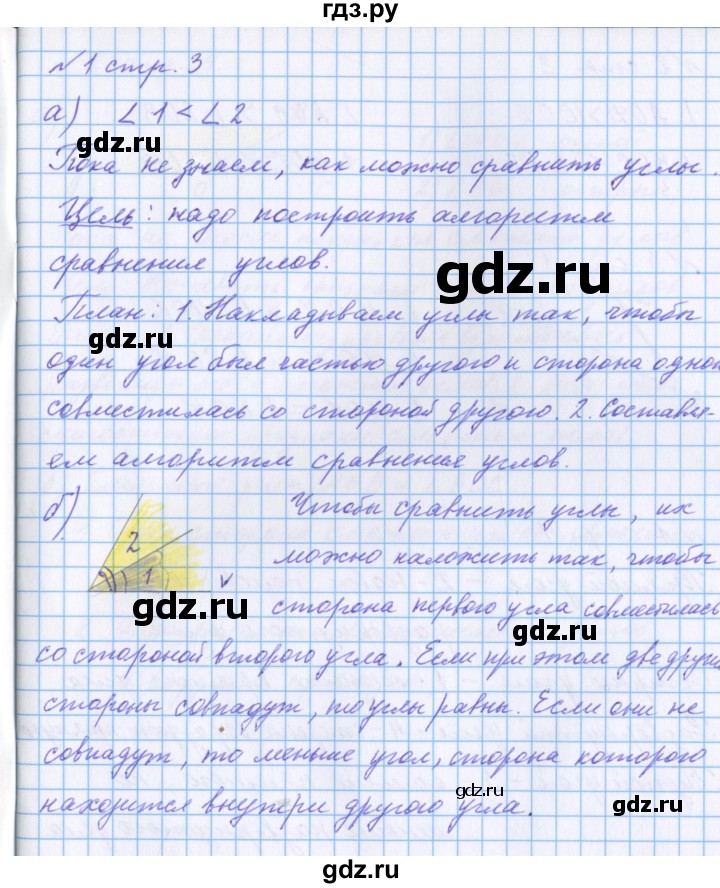 гдз.ру
№1 стр. 3
а) ∠1 < ∠2
gdz.ru
Пока не знаем, как можно сравнить углы.
Цель: надо построить алгоритм
сравнения углов.
gdz.ru
План: 1. Накладываем углы так, чтобы
gdz.ru
один угол был частью другого и сторона одног
совместилась со стороной другого. 2. Составля-
ем алгоритм сравнения углов.
б) Чтобы сравнить углы, их
2
1
можно наложить так, чтобы
gdz.ru
сторона первого угла совместилась
gdz.ru
со стороной второго угла. Если при этом две други
стороны совпадут, то углы равны. Если они не
совпадут, то меньше угол, сторона которого
gdz.ru
gdz.ru
находится внутри другого угла.
gdz.ru